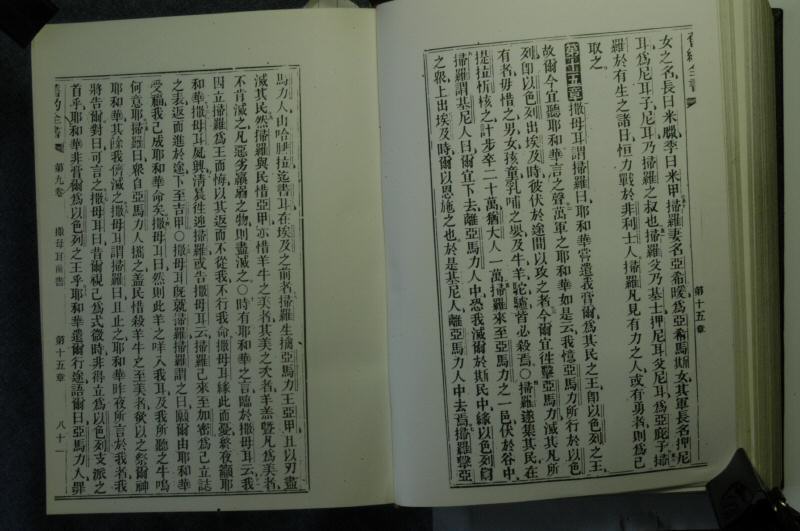 舊約全書
第十五章
女之名長曰米臘季曰米甲掃羅妻名亞希暖爲亞希馬斯女其軍長名押尼
耳爲尼耳子尼耳乃掃羅之叔也掃羅父乃基士押尼耳父尼耳爲亞庇子掃
羅於有生之諸日恒力戰於非利士人掃羅凡見有力之人或有勇者則爲己
取之
第十五章撒母耳謂掃羅曰耶和華嘗遣我膏爾爲其民之王卽以色列之王
故爾今宜聽耶和華言之聲萬軍之耶和華如是云我憶亞馬力所行於以色
列卽以色列出埃及時彼伏於途間以攻之者今爾宜往擊亞馬力滅其凡所
有者毋惜之男女孩童乳哺之嬰及牛羊駝驢皆必殺焉○掃羅遂集其民在
提拉忻核之計步卒二十萬猶大人一萬掃羅來至亞馬力之一邑伏於谷中
掃羅謂基尼人曰爾宜下去離亞馬力人中恐我滅爾於斯民中緣以色列
之衆上出埃及時爾以恩施之也於是基尼人離亞馬力人中去焉掃羅擊亞
馬力人由哈腓拉迄書耳在埃及之前者掃羅生擒亞馬力王亞甲且以刃盡
滅其民然掃羅與民惜亞甲亦惜羊牛之美者其美之次者羊羔曁凡爲美者
不肯滅之凡惡劣羸瘠之物則盡滅之○時有耶和華之言臨於撒母耳云我
因立掃羅爲王而悔以其返而不從我不行我命撒母耳緣此而憂終夜籲耶
和華撒母耳夙興淸晨往迎掃羅或告撒母耳云掃羅已來至加密爲己立誌
之表返而進於途下至吉甲○撒母耳旣就掃羅掃羅謂之曰願爾由耶和華
受福我已成耶和華命矣撒母耳曰然則此羊之咩入我耳及我所聽之牛鳴
何意耶掃羅曰衆自亞馬力人攜之蓋民惜殺羊牛之至美者欲以之祭爾神
耶和華其餘我儕滅之撒母耳謂掃羅曰且止之耶和華昨夜所言於我者我
將告爾對曰可言之撒母耳曰昔爾視己爲式微時非得立爲以色列支派之
首乎耶和華非膏爾爲以色列之王乎耶和華遣爾行途語爾曰亞馬力人罪
舊約全書 第九卷 撒母耳前書 第十五章 八十一